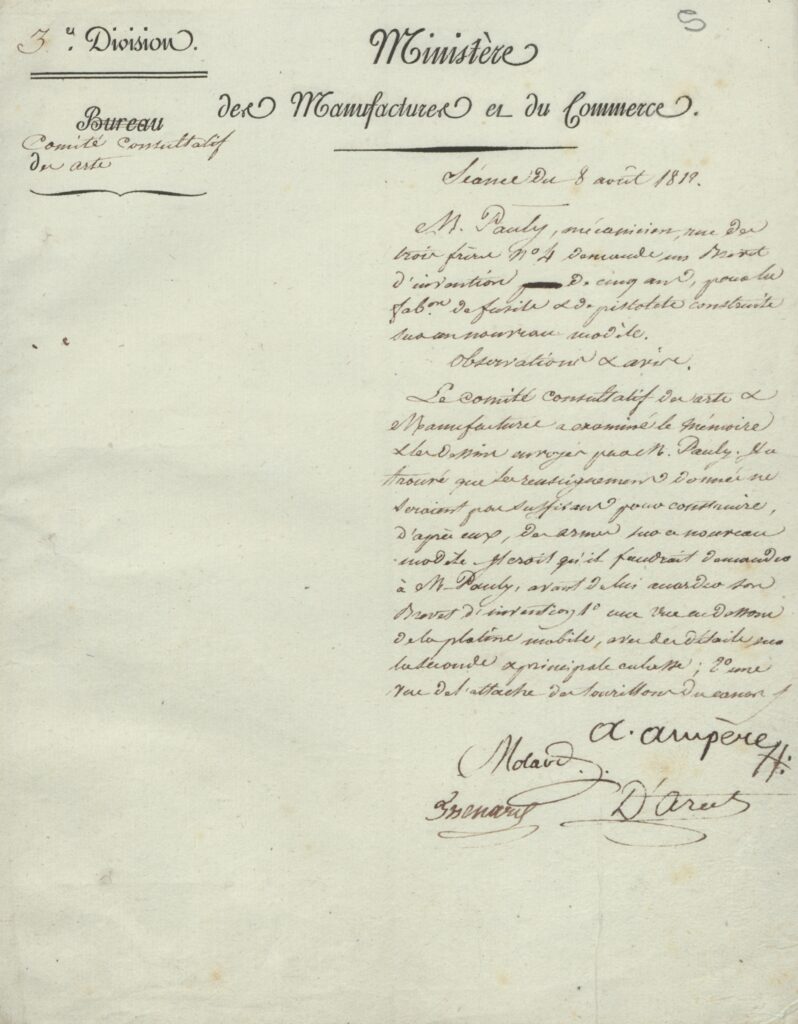 5
3.e Division.
Ministère
des Manufactures et du Commerce.
Bureau
Comité consultatif
des arts
Séance du 8 août 1812.
M. Pauly, mécanicien, rue des
trois frères N° 4 demande un Brevet
d'invention de cinq ans, pour la
fabon. de fusils & de pistolets construits
sur un nouveau modèle.
Observations & avis.
Le comité consultatif des arts &
Manufactures a examiné le mémoire
& les dessins envoyés par M. Pauly. Il a
trouvé que les renseignemens donnés ne
seraient pas suffisans pour construire,
d'après eux, des armes sur ce nouveau
modèle. Il croit qu'il faudrait demander
à M. Pauly, avant de lui accorder son
Brevet d'invention, 1° une vue en dessous
de la platine mobile, avec des détails sur
la seconde & principale culasse ; 2° une
vue de l'attache des tourillons du canon
a. ampère
Molard
Thenard D'Arcet